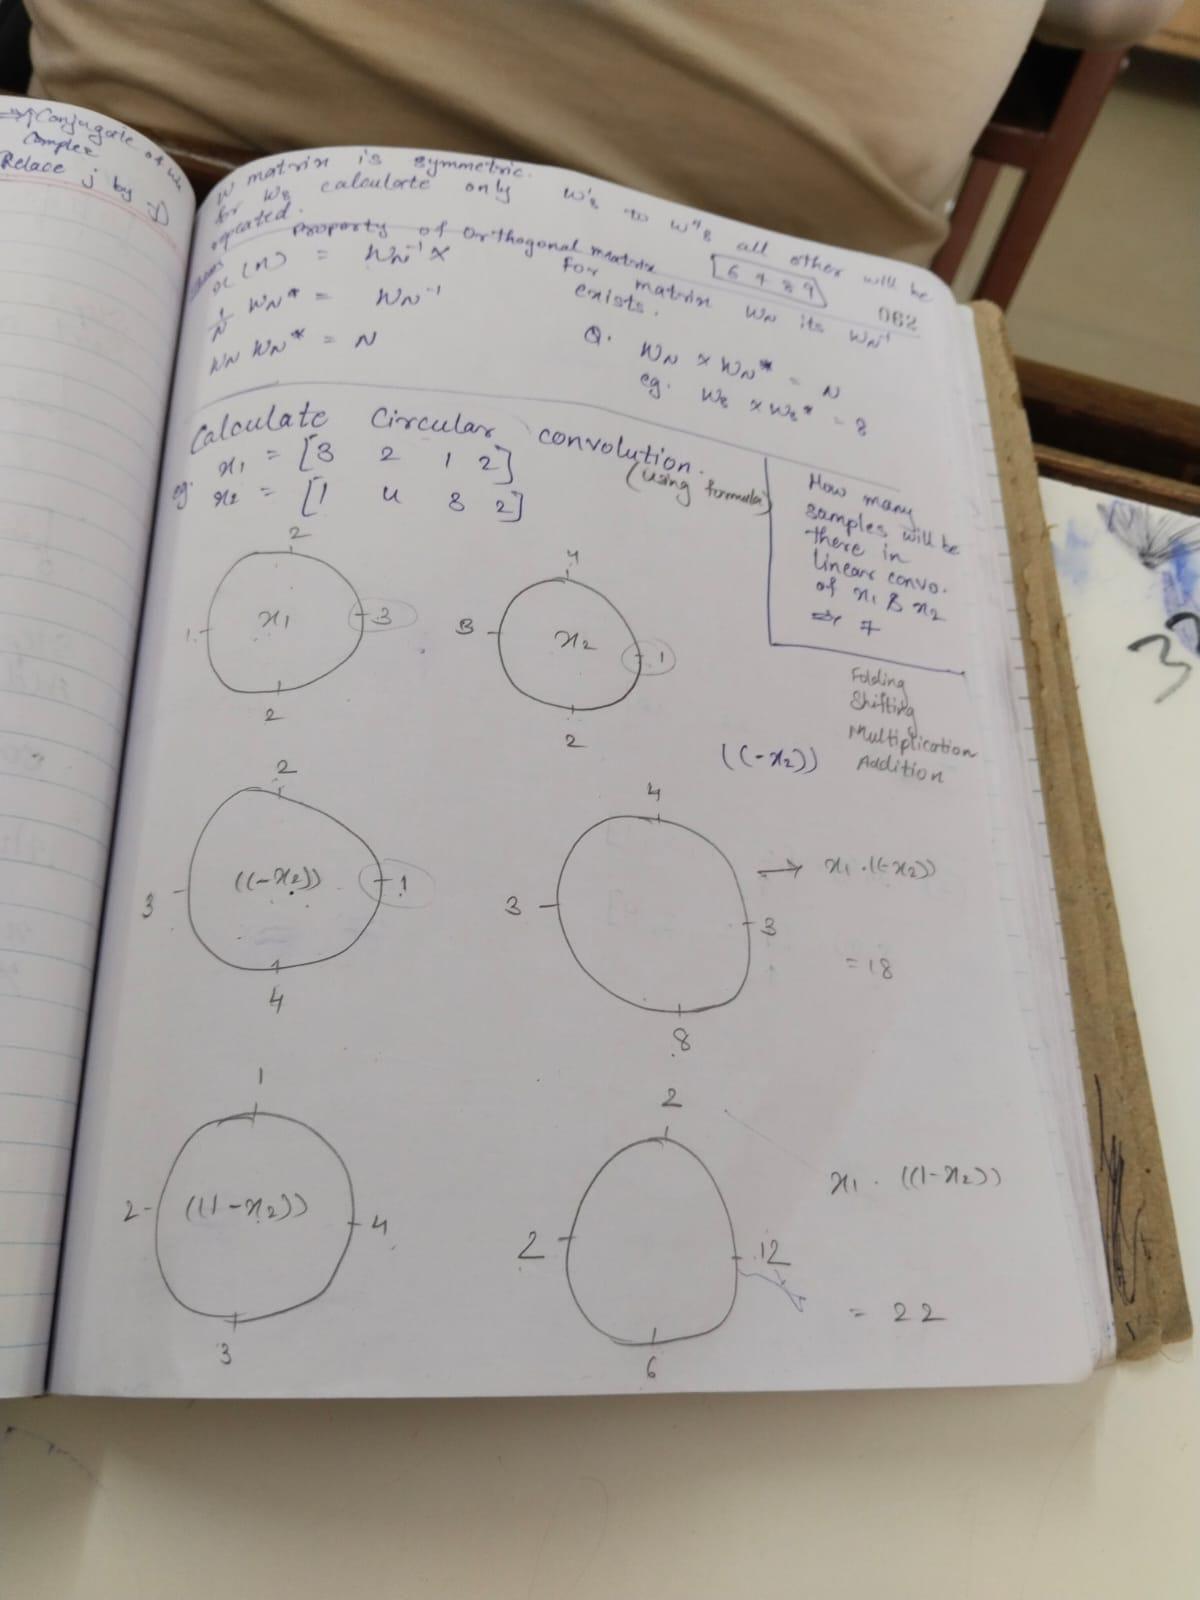 ⇒ Conjugate of
Complex
Relace j by -j
W matrix is symmetric.
for W8 calculate only W'8 to W"8 all other will be
repeated.
Property of Orthogonal matrix [6 7 8 9]
x(n) = WN⁻¹ X
1/N WN* = WN⁻¹
WN WN* = N
for matrix WN its WN⁻¹
exists.
062
Q. WN × WN* = N
eg. W8 × W8* = 8
Calculate Circular convolution.
(Using formula)
eg. x1 = [3 2 1 2]
x2 = [1 4 3 2]
How many
samples will be
there in
linear convo.
of x1 & x2
⇒ 7
2
1 x1 3
2
4
3 x2 1
2
Folding
Shifting
Multiplication
Addition
((-x2))
2
3 ((-x2)) 1
4
4
3 3
8
→ x1 . ((-x2))
= 18
1
2 ((1-x2)) 4
3
2
2 12
6
x1 . ((1-x2))
= 22
3